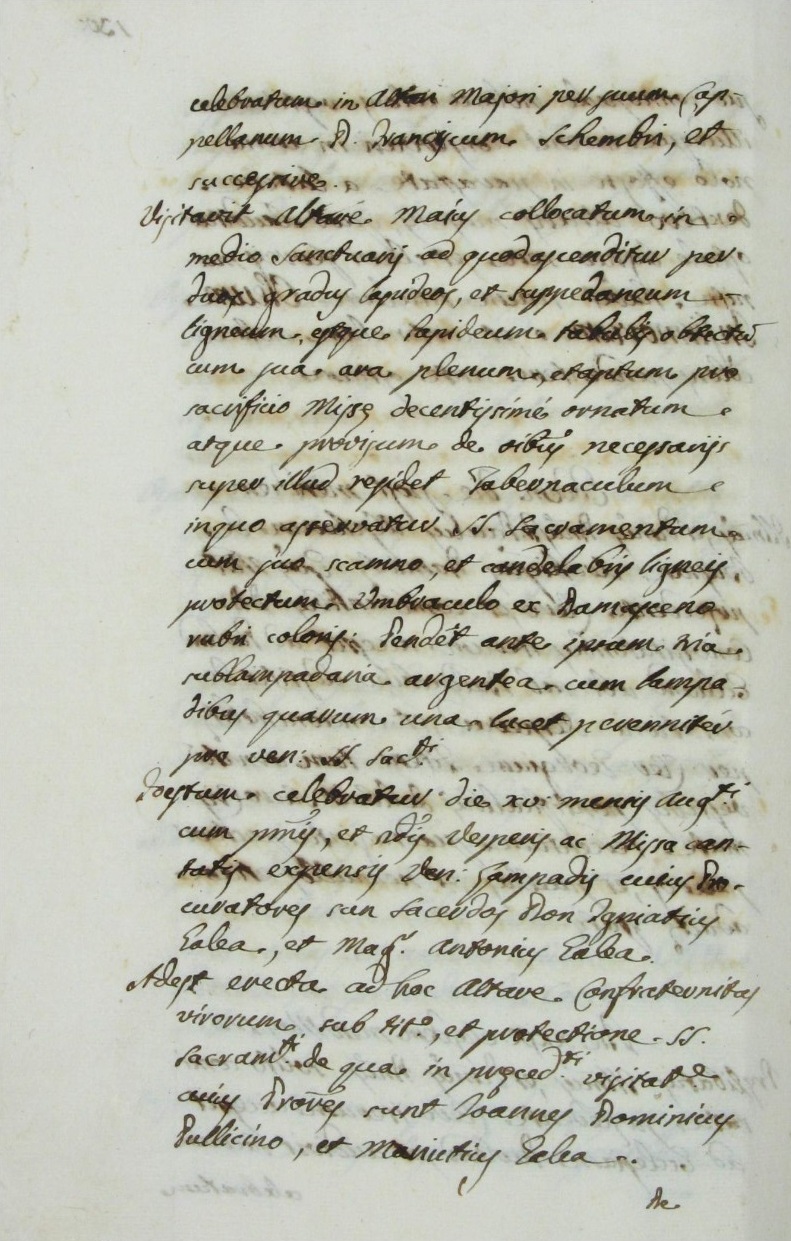 celebratum in Altari Majori per suum Cap-
pellanum D. Franciscum Schembri, et
successive.
Visitavit Altare Maius collocatum in
medio Sanctuarij ad quod ascenditur per
duos gradus lapideos, et suppedaneum
ligneum, estque lapideum tabulis obtectũ
cum sua ara plenum, et aptum pro
sacrificio Missę decentissimè ornatum
atque provisum de oĩbus necessarijs
super illud residet Tabernaculum
in quo asservatur SS. Sacramentum
cum suo scamno, et candelabris ligneis
protectum Umbraculo ex Damasceno
rubri coloris: Pendet ante ipsam tria
sublampadaria argentea cum lampa-
dibus quarum una lucet perennitèr
pro ven: SS. Sac.ti
Festum celebratur die xv mensis Aug.ti
cum pm̃is, et 2dis Vesperis ac Missa can-
tatis expensis Ven: Lampadis cuius Pro-
curatores sun Sacerdos Don Ignatius
Ealea, et Mag.r Antonius Ealea.
Adest erecta ad hoc Altare Confraternitas
virorum sub tit.o, et protectione SS.
Sacram.ti de qua in pręced.ti visitat.e
cuius Prõres sunt Joannes Dominicus
Pullicino, et Mauritius Ealea.
De